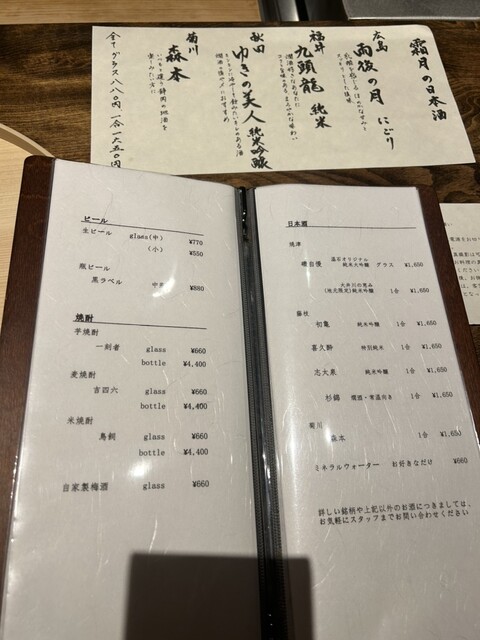 霜月の日本酒
広島
雨後の月 にごり
福井
九頭龍 純米
秋田
ゆきの美人 純米吟醸
菊川
森本
いつもと違う静岡の地酒を
楽しみたい方に
全てグラス八八〇円 一合一六五〇円
ビール
生ビール glass(中) ¥770
(小) ¥550
瓶ビール
黒ラベル 中瓶 ¥880
焼酎
芋焼酎
一刻者 glass ¥660
bottle ¥4,400
麦焼酎
吉四六 glass ¥660
bottle ¥4,400
米焼酎
鳥飼 glass ¥660
bottle ¥4,400
自家製梅酒 glass ¥660
日本酒
焼津
磯自慢 温石オリジナル 純米大吟醸 グラス ¥1,650
大井川の恵み
(地元限定)純米吟醸 1合 ¥1,650
藤枝
初亀 純米吟醸 1合 ¥1,650
喜久酔 特別純米 1合 ¥1,650
志太泉 純米吟醸 1合 ¥1,650
杉錦 燗酒・常温向き 1合 ¥1,650
菊川
森本 1合 ¥1,650
ミネラルウォーター お好きなだけ ¥660
詳しい銘柄や上記以外のお酒につきましては、
お気軽にスタッフまでお問い合わせください